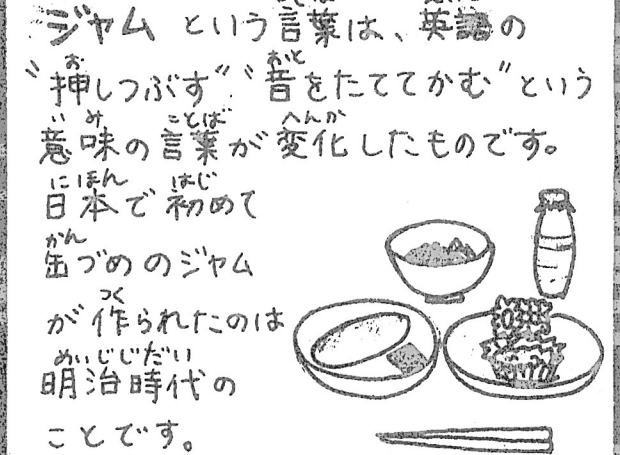 ジャム という言葉は、英語の
"押しつぶす" "音をたててかむ"という
意味の言葉が変化したものです。
日本で初めて
缶づめのジャム
が作られたのは
明治時代の
ことです。